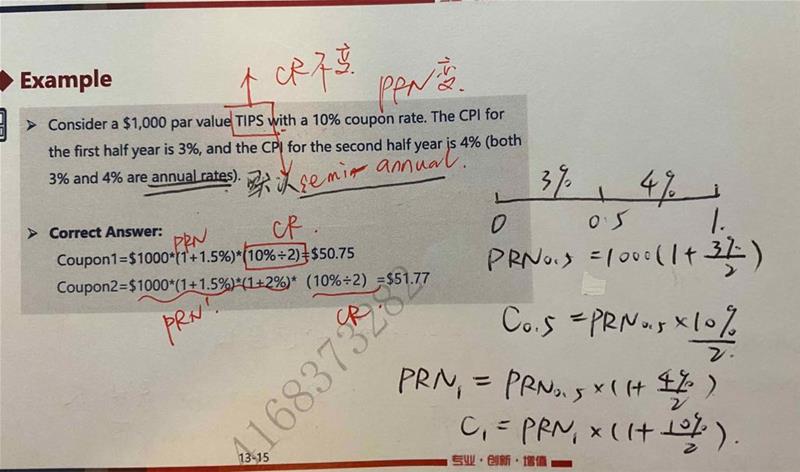 Example
↑ CR不变
PRN变.
Consider a $1,000 par value TIPS with a 10% coupon rate. The CPI for
the first half year is 3%, and the CPI for the second half year is 4% (both
3% and 4% are annual rates). 默认 semi-annual.
3% 4%
0 0.5 1.
Correct Answer:
PRN CR.
Coupon1=$1000*(1+1.5%)*(10%÷2)=$50.75
Coupon2=$1000*(1+1.5%)*(1+2%)* (10%÷2) =$51.77
PRN' CR.
PRN0.5 = 1000(1+3%/2)
C0.5 = PRN0.5 × 10%/2.
PRN1 = PRN0.5 × (1+4%/2)
C1 = PRN1 × (1+10%/2).
4168373282
13-15
专业·创新·增值